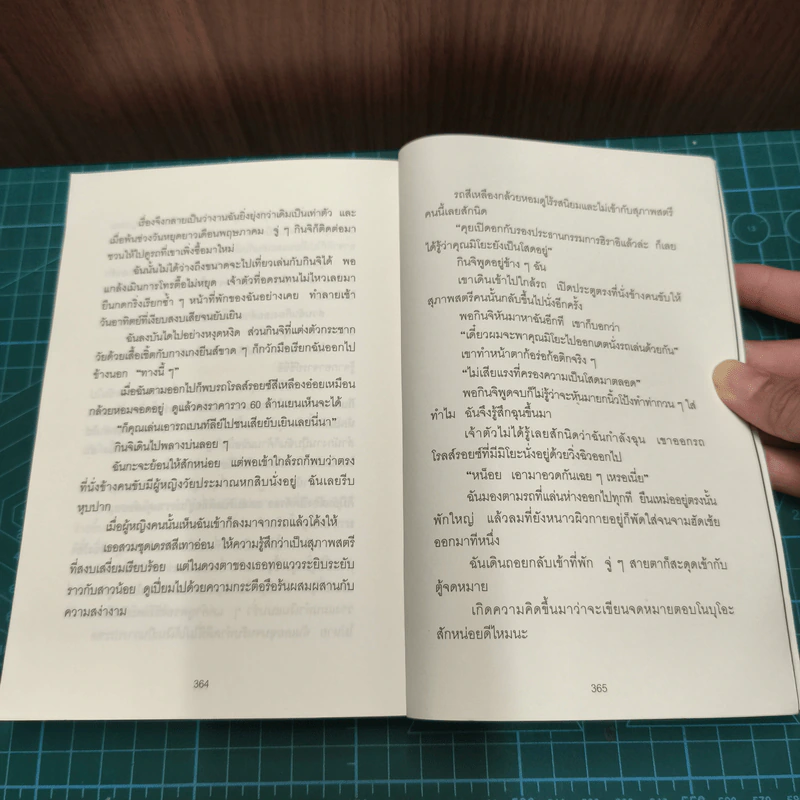 เรื่องจึงกลายเป็นว่างานฉันยิ่งยุ่งกว่าเดิมเป็นเท่าตัว และ
เมื่อพ้นช่วงวันหยุดยาวเดือนพฤษภาคม จู่ ๆ กินจิก็ติดต่อมา
ชวนให้ไปดูรถที่เขาเพิ่งซื้อมาใหม่
ฉันนั้นไม่ได้ว่างถึงขนาดจะไปเที่ยวเล่นกับกินจิได้ พอ
แกล้งเมินการโทรตื๊อไม่หยุด เจ้าตัวที่อดรนทนไม่ไหวเลยมา
ยืนกดกริ่งเรียกซ้ำ ๆ หน้าที่พักของฉันอย่างเคย ทำลายเช้า
วันอาทิตย์ที่เงียบสงบเสียจนยับเยิน
ฉันลงบันไดไปอย่างหงุดหงิด ส่วนกินจิที่แต่งตัวกระชาก
วัยด้วยเสื้อเชิ้ตกับกางเกงยีนส์ขาด ๆ ก็กวักมือเรียกฉันออกไป
ข้างนอก “ทางนี้ ๆ”
เมื่อฉันตามออกไปก็พบรถโรลส์รอยซ์สีเหลืองอ๋อยเหมือน
กล้วยหอมจอดอยู่ ดูแล้วคงราคาราว 60 ล้านเยนเห็นจะได้
“ก็คุณเล่นเอารถเบนท์ลีย์ไปชนเสียยับเยินเลยนี่นา”
กินจิเดินไปพลางบ่นลอย ๆ
ฉันกะจะย้อนให้สักหน่อย แต่พอเข้าใกล้รถก็พบว่าตรง
ที่นั่งข้างคนขับมีผู้หญิงวัยประมาณหกสิบนั่งอยู่ ฉันเลยรีบ
หุบปาก
เมื่อผู้หญิงคนนั้นเห็นฉันเข้าก็ลงมาจากรถแล้วโค้งให้
เธอสวมชุดเดรสสีเทาอ่อน ให้ความรู้สึกว่าเป็นสุภาพสตรี
ที่สงบเสงี่ยมเรียบร้อย แต่ในดวงตาของเธอทอแววระยิบระยับ
ราวกับสาวน้อย ดูเปี่ยมไปด้วยความกระตือรือร้นผสมผสานกับ
ความสง่างาม
364
รถสีเหลืองกล้วยหอมดูไร้รสนิยมและไม่เข้ากับสุภาพสตรี
คนนี้เลยสักนิด
“คุยเปิดอกกับรองประธานกรรมการฮิราอิแล้วล่ะ ก็เลย
ได้รู้ว่าคุณมิโยะยังเป็นโสดอยู่”
กินจิพูดอยู่ข้าง ๆ ฉัน
เขาเดินเข้าไปใกล้รถ เปิดประตูตรงที่นั่งข้างคนขับให้
สุภาพสตรีคนนั้นกลับขึ้นไปนั่งอีกครั้ง
พอกินจิหันมาหาฉันอีกที เขาก็บอกว่า
“เดี๋ยวผมจะพาคุณมิโยะไปออกเดตนั่งรถเล่นด้วยกัน”
เขาทำหน้าตาก้อร่อก้อติกจริง ๆ
“ไม่เสียแรงที่ครองความเป็นโสดมาตลอด”
พอกินจิพูดจบก็ไม่รู้ว่าจะหันมายกนิ้วโป้งทำท่ากวน ๆ ใส่
ทำไม ฉันจึงรู้สึกฉุนขึ้นมา
เจ้าตัวไม่ได้รู้เลยสักนิดว่าฉันกำลังฉุน เขาออกรถ
โรลส์รอยซ์ที่มีมิโยะนั่งอยู่ด้วยวิ่งฉิวออกไป
“หน็อย เอามาอวดกันเฉย ๆ เหรอเนี่ย”
ฉันมองตามรถที่แล่นห่างออกไปทุกที ยืนเหม่ออยู่ตรงนั้น
พักใหญ่ แล้วลมที่ยังหนาวผิวกายอยู่ก็พัดใส่จนจามฮัดเช้ย
ออกมาทีหนึ่ง
ฉันเดินถอยกลับเข้าที่พัก จู่ ๆ สายตาก็สะดุดเข้ากับ
ตู้จดหมาย
เกิดความคิดขึ้นมาว่าจะเขียนจดหมายตอบโนบุโอะ
สักหน่อยดีไหมนะ
365